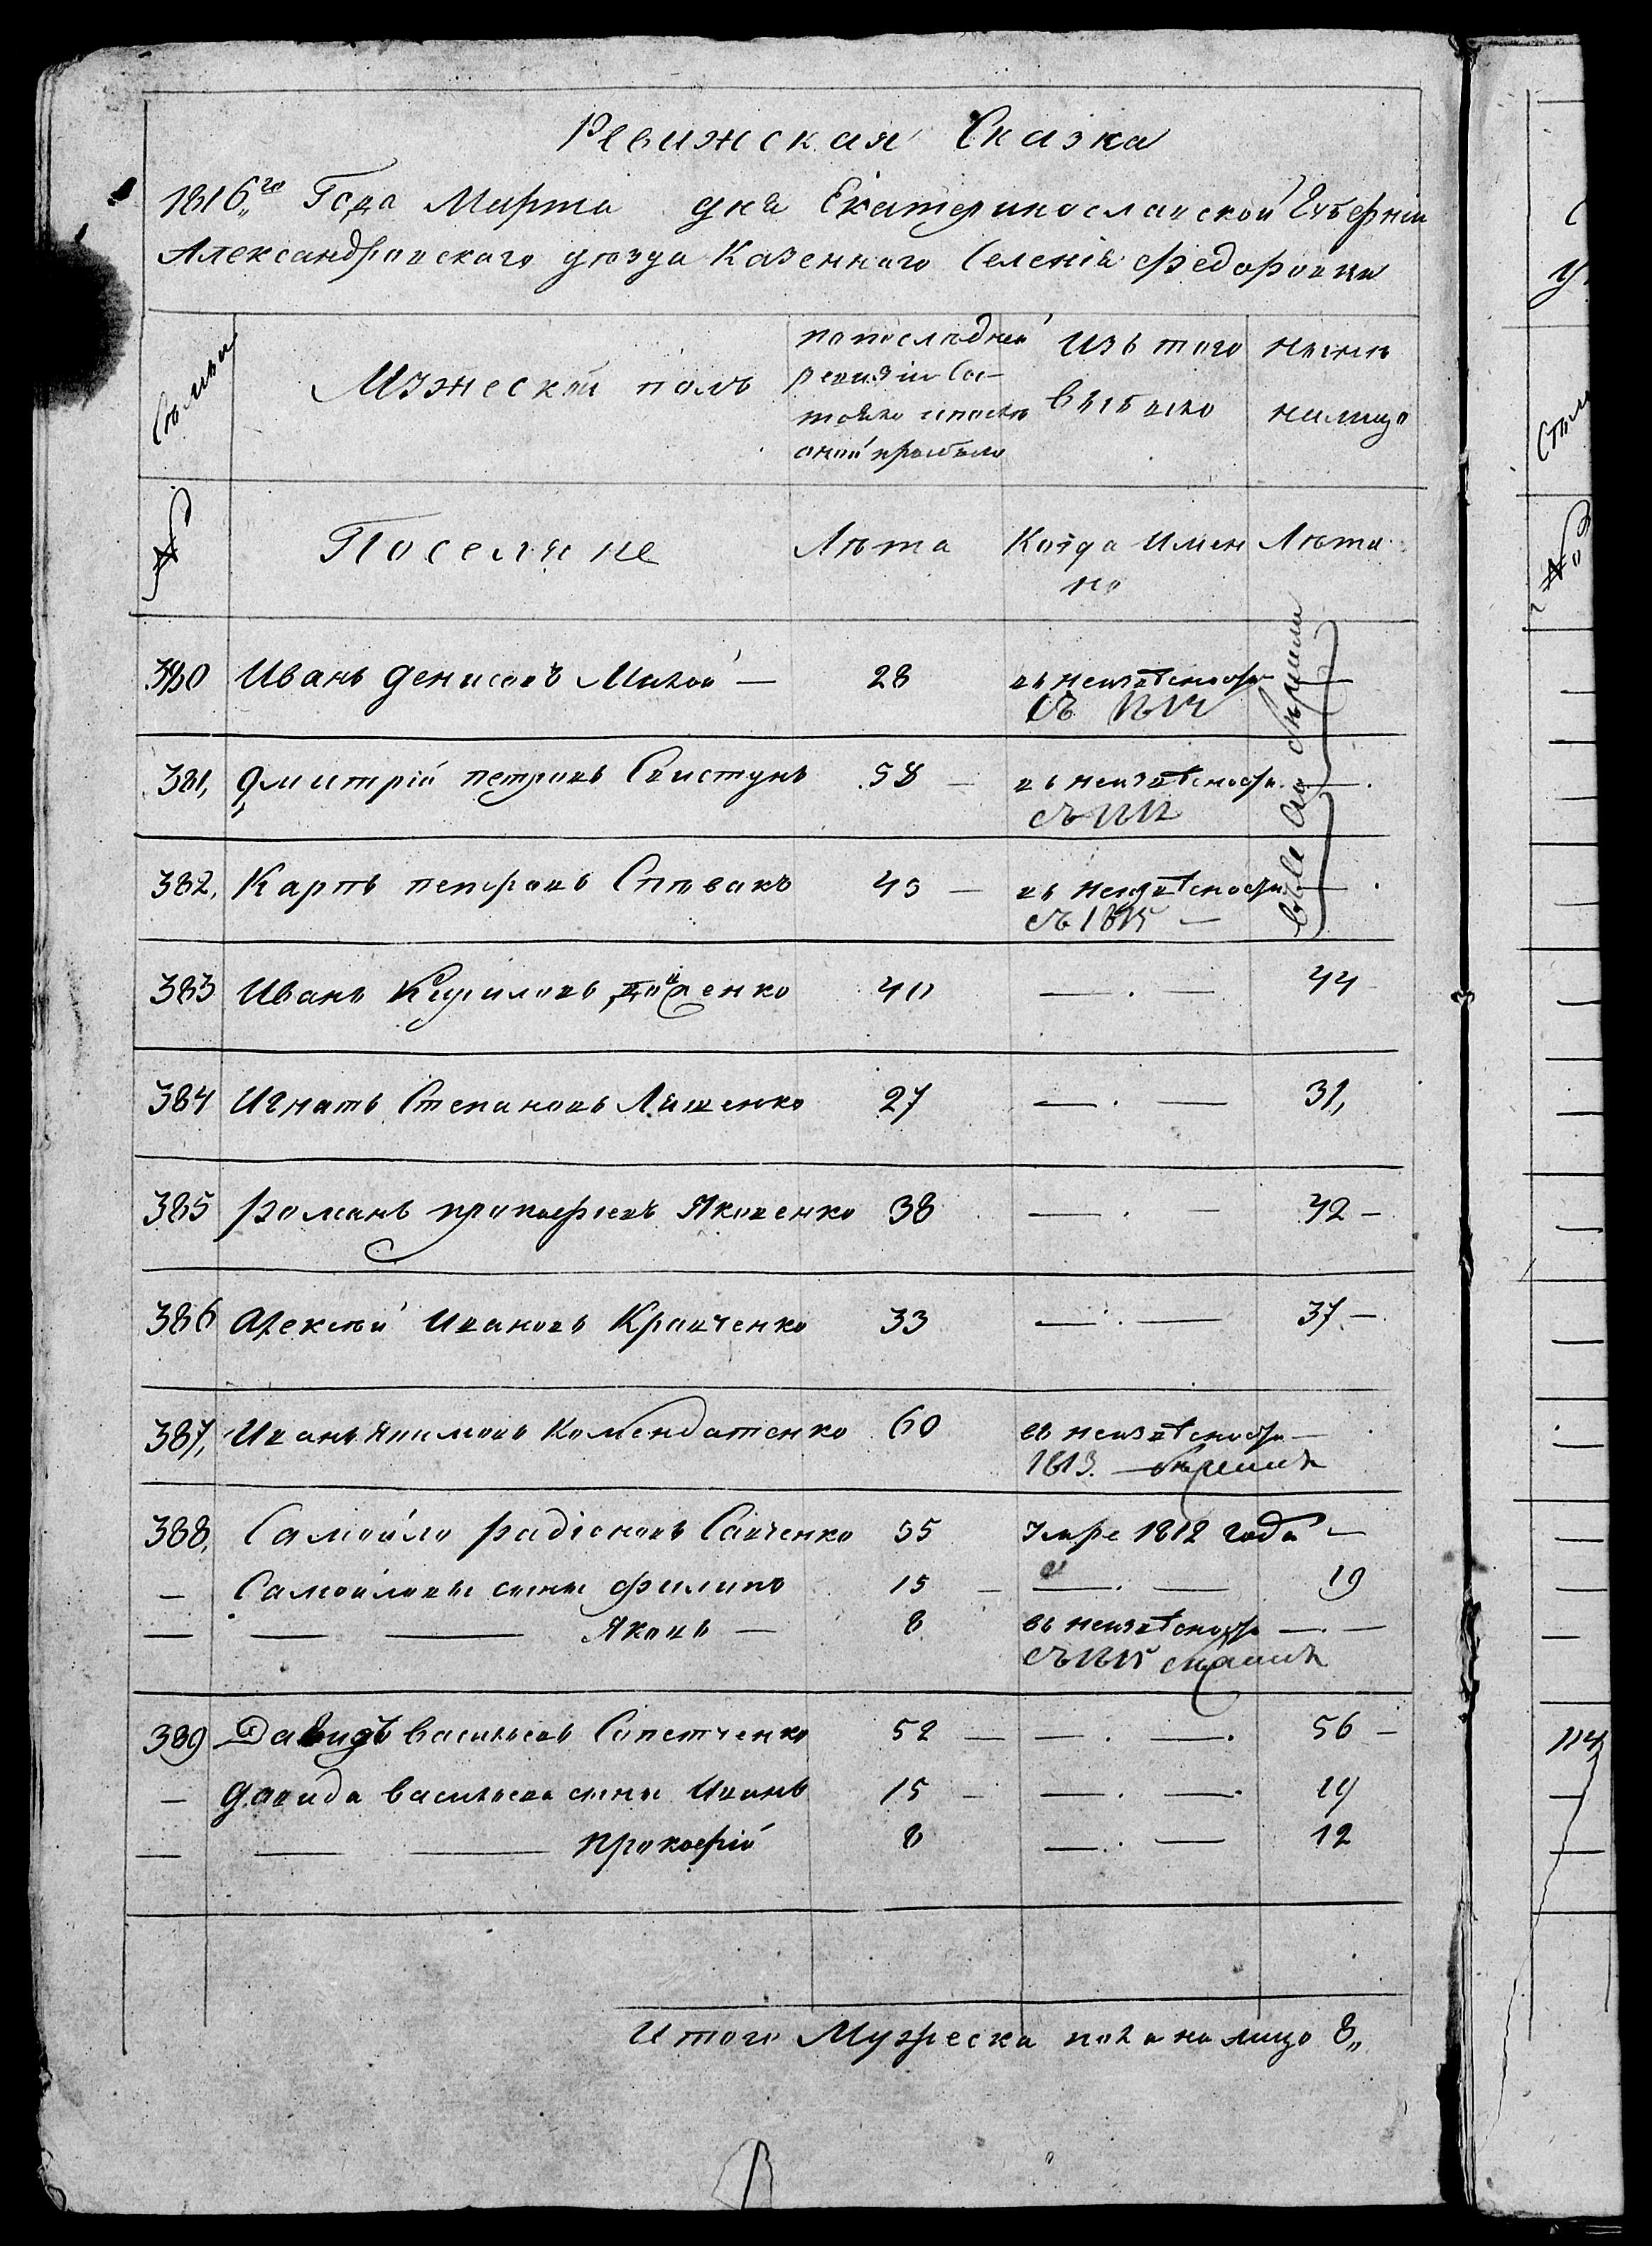 Ревижская Сказка
1816го Года Марта дня Екатеринославской Губернiи
Александровского уюзда Казенного Селенiя Федоровки
Сѣмьи
Мужеской полъ
попослѣдней ревизiи Со-
тояло ипослѣ
оной прибыло
Изъ того
выбыло
нынѣ
налицо
№
Поселяне
Лѣта
Когда Имен
но
Лѣта
380 Иванъ денисовъ Милой — 28 въ неизвѣсности —
съ 1814
381, дмитрiй петровъ Свистунъ 58 — въ неизвѣсности —
съ 1812
382, Карпъ петровъ Спѣвакъ 43 — въ неизвѣсности —
съ 1815 —
383 Иванъ Кириловъ енко 40 — . — 44
384 Игнатъ Степановъ Ляшенко 27 — . — 31,
385 романъ прокофiевъ Яковенко 38 — . — 42 —
386 Алексѣй Ивановъ Кравченко 33 — . — 37 —
387, Иванъ Якимовъ Комендатенко 60 въ неизвѣсности —
1813.
388, Самойло радiоновъ Савченко 55 Умре 1812 года —
— Самойловы сыны филипъ 15 — — . — 19
— — — Яковъ — 8 въ неизвѣсности — . —
съ 1815
389 Давидъ васильевъ Сопетченко 52 — — . — 56 —
— давида васильева сыны Иванъ 15 — — . — 19
— — — прокофiй 8 — . — 12
Итого Мужеска пола на лицо 8„